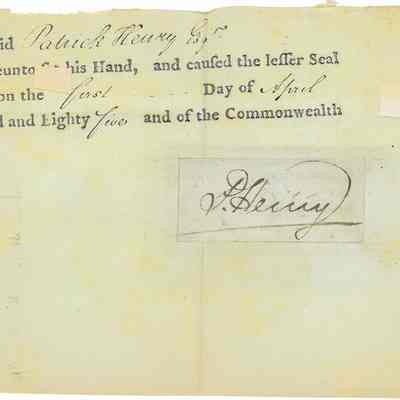 id Patrick Henry Esqr
eunto his Hand, and caused the lesser Seal
on the first Day of April
l and Eighty five and of the Commonwealth
P. Henry